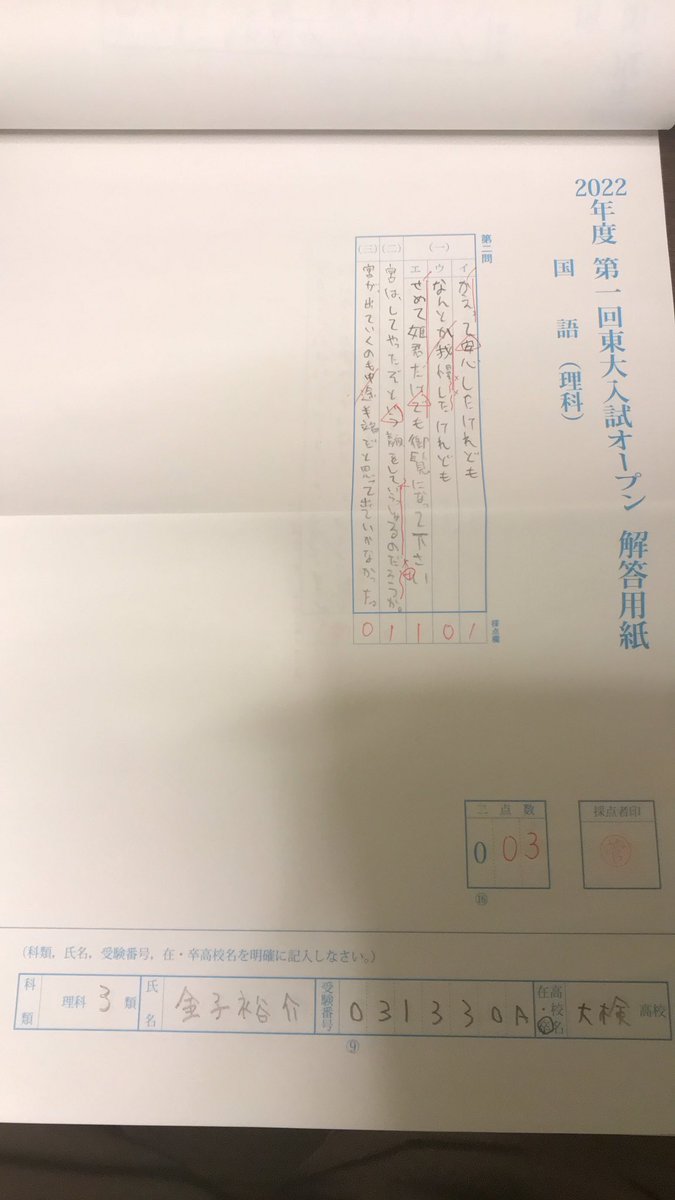 2022年度 第一回東大入試オープン 解答用紙
国語(理科)
第二問
(一)
イ かえって母心したけれども
ウ なんとか我慢したけれども
エ せめて姫君だけでも御覧になって下さい
(二) 宮は、してやったぞという顔をしていらっしゃるのだろうか。
(三) 宮が出ていくのも
と思って出ていかなかった。
採点欄
1
0
1
1
0
点数
0 03
⑯
採点者印
菅
(科類,氏名,受験番号,在・卒高校名を明確に記入しなさい。)
科類 理科 3 類 氏名 金子裕介 受験番号 031330A 在・卒高校名 大検 高校
⑨